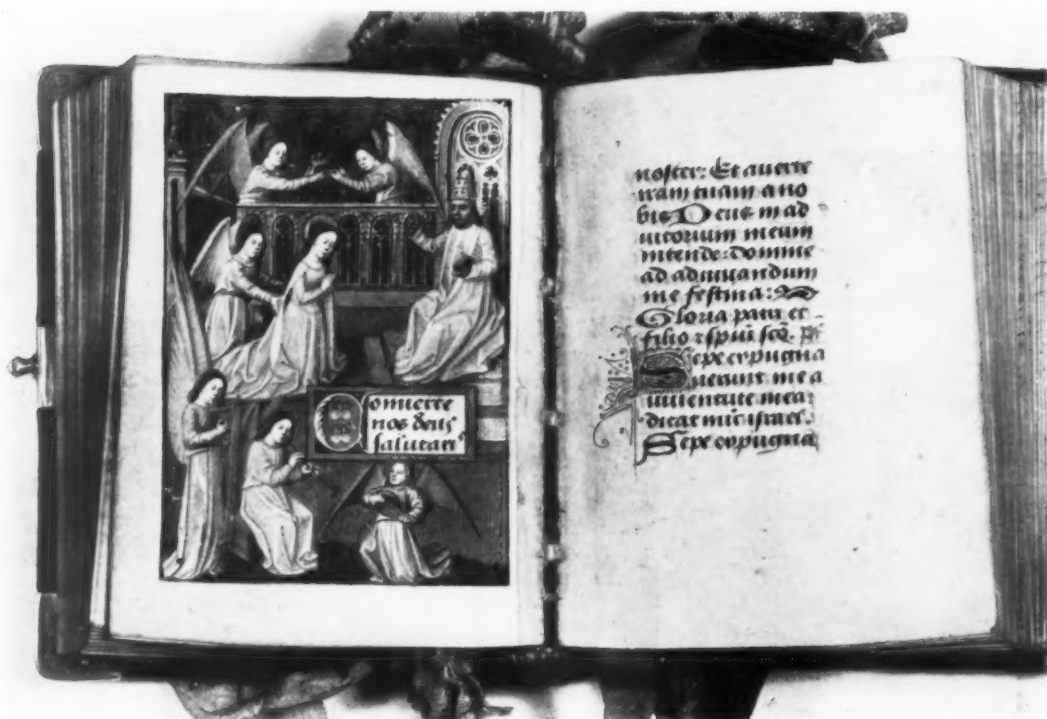 Conuerte
nos deus
salutaris
noster: Et auerte
iram tuam a no
bis Deus in ad
iutorium meum
intende: domine
ad adiuuandum
me festina:
Gloria patri et
filio ⁊ spūi scō. ps̄
Sepe expugna
uerunt me a
iuuentute mea
dicat nūc israel.
Sepe expugna